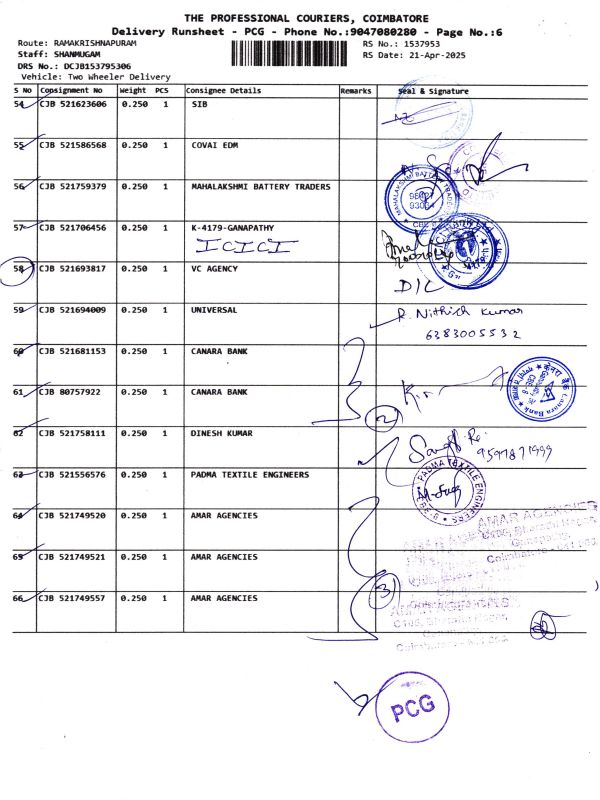 THE PROFESSIONAL COURIERS, COIMBATORE
Delivery Runsheet - PCG - Phone No.:9047080280 - Page No.:6
Route: RAMAKRISHNAPURAM RS No.: 1537953
Staff: SHANMUGAM RS Date: 21-Apr-2025
DRS No.: DCJB153795306
Vehicle: Two Wheeler Delivery
S No Consignment No Weight PCS Consignee Details Remarks Seal & Signature
54 CJB 521623606 0.250 1 SIB
55 CJB 521586568 0.250 1 COVAI EDM
56 CJB 521759379 0.250 1 MAHALAKSHMI BATTERY TRADERS
57 CJB 521706456 0.250 1 K-4179-GANAPATHY
ICICI
58 CJB 521693817 0.250 1 VC AGENCY D/C
59 CJB 521694009 0.250 1 UNIVERSAL R. Nithish Kumar
6383005532
60 CJB 521681153 0.250 1 CANARA BANK
Canara Bank
61 CJB 80757922 0.250 1 CANARA BANK
2
62 CJB 521758111 0.250 1 DINESH KUMAR
63 CJB 521556576 0.250 1 PADMA TEXTILE ENGINEERS
PADMA TEXTILE ENGINEERS
64 CJB 521749520 0.250 1 AMAR AGENCIES
AMAR AGENCIES
65 CJB 521749521 0.250 1 AMAR AGENCIES
3
66 CJB 521749557 0.250 1 AMAR AGENCIES
PCG